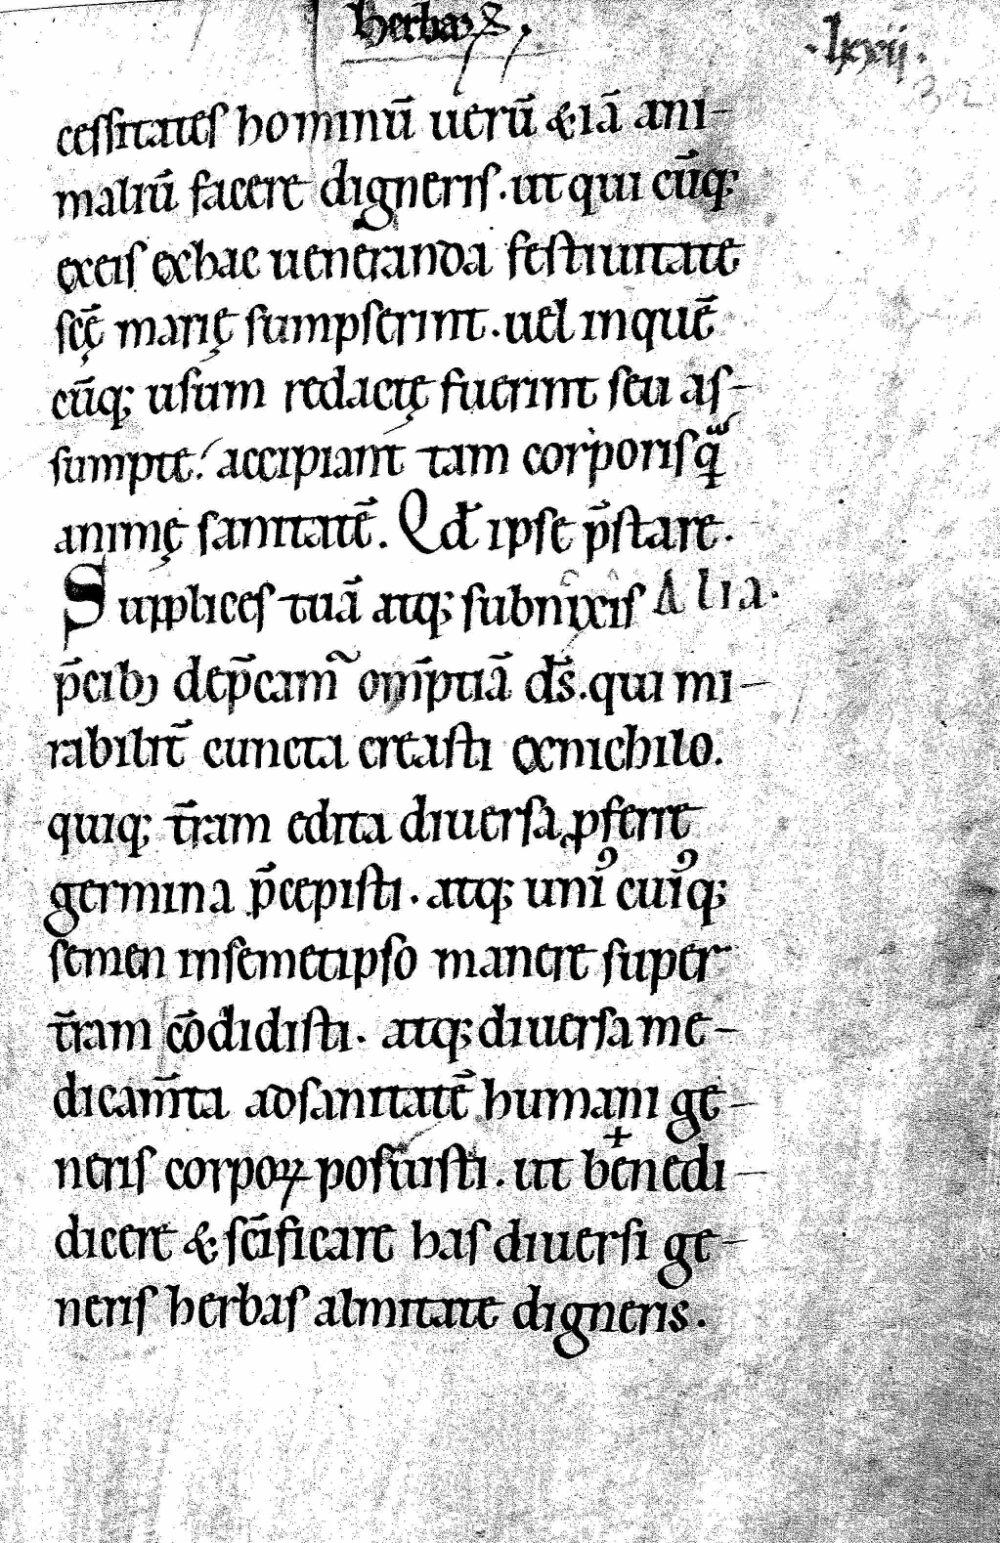 herbaꝝ
·lxxij·
32
ceſſitateſ hominū uerū &iā ani-
maliū facere digneriſ. ut qui cūq;
exeiſ exhac ueneranda feſtiuitate
ſcę̄ marię ſumpſerint. uel inquē
cūq; uſum redactę fuerint ſeu aſ-
ſumpte. accipiant tam corporiſ qͣ̄
animę ſanitatē. Qd̄ ipſe p̄ſtare.
Suppliceſ tuā atq; ſubnixiſ Alia.
p̄cib; dep̄camᷓ om̄ptiā ds̄. qui mi-
rabilit̄ cuncta creaſti exnichilo.
quiq; t̄ram edita diuerſa ꝓferre
germina p̄cepiſti. atq; uniꝰ cuiꝰq;
ſemen inſemetipſo manere ſuper
t̄ram cōdidiſti. atq; diuerſa me-
dicam̄ta adſanitatē humani ge-
neriſ corpoꝝ poſuiſti. ut be+nedi-
dicere & ſcīficare haſ diuerſi ge-
neriſ herbaſ almitate digneris.